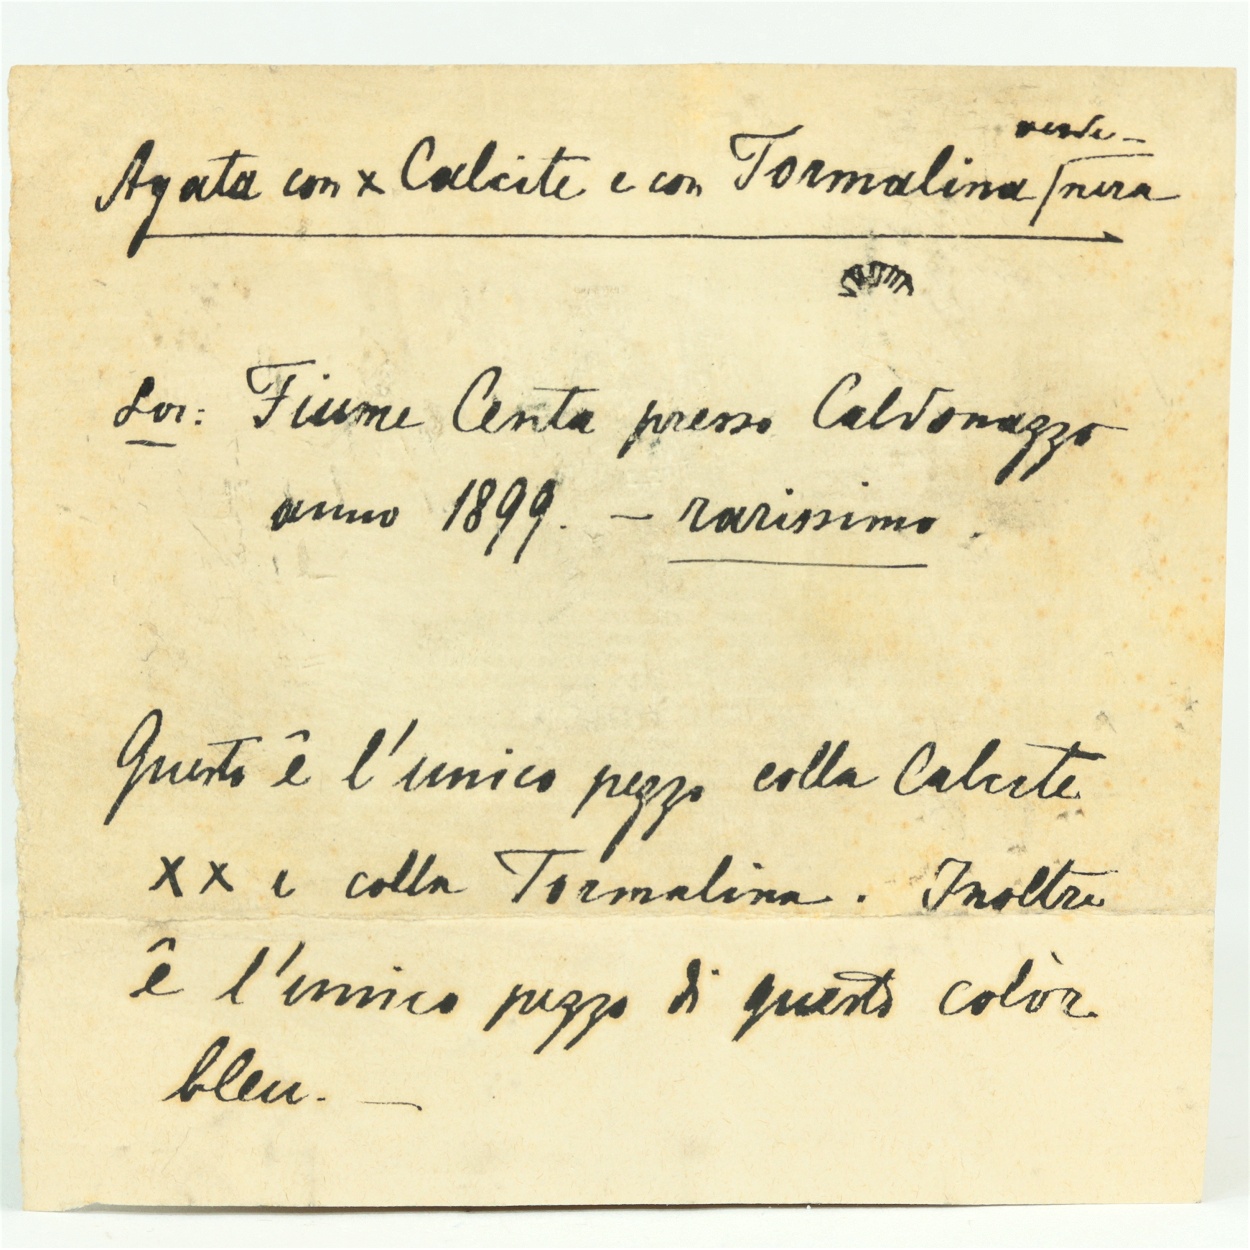 Agata con x Calcite e con Tormalina verde - / nera
Loc: Fiume Centa presso Caldonazzo
anno 1899. - rarissimo.
Questo ê l'unico pezzo colla Calcite
xx e colla Tormalina. Inoltre
ê l'unico pezzo di questo colòr
bleu. -